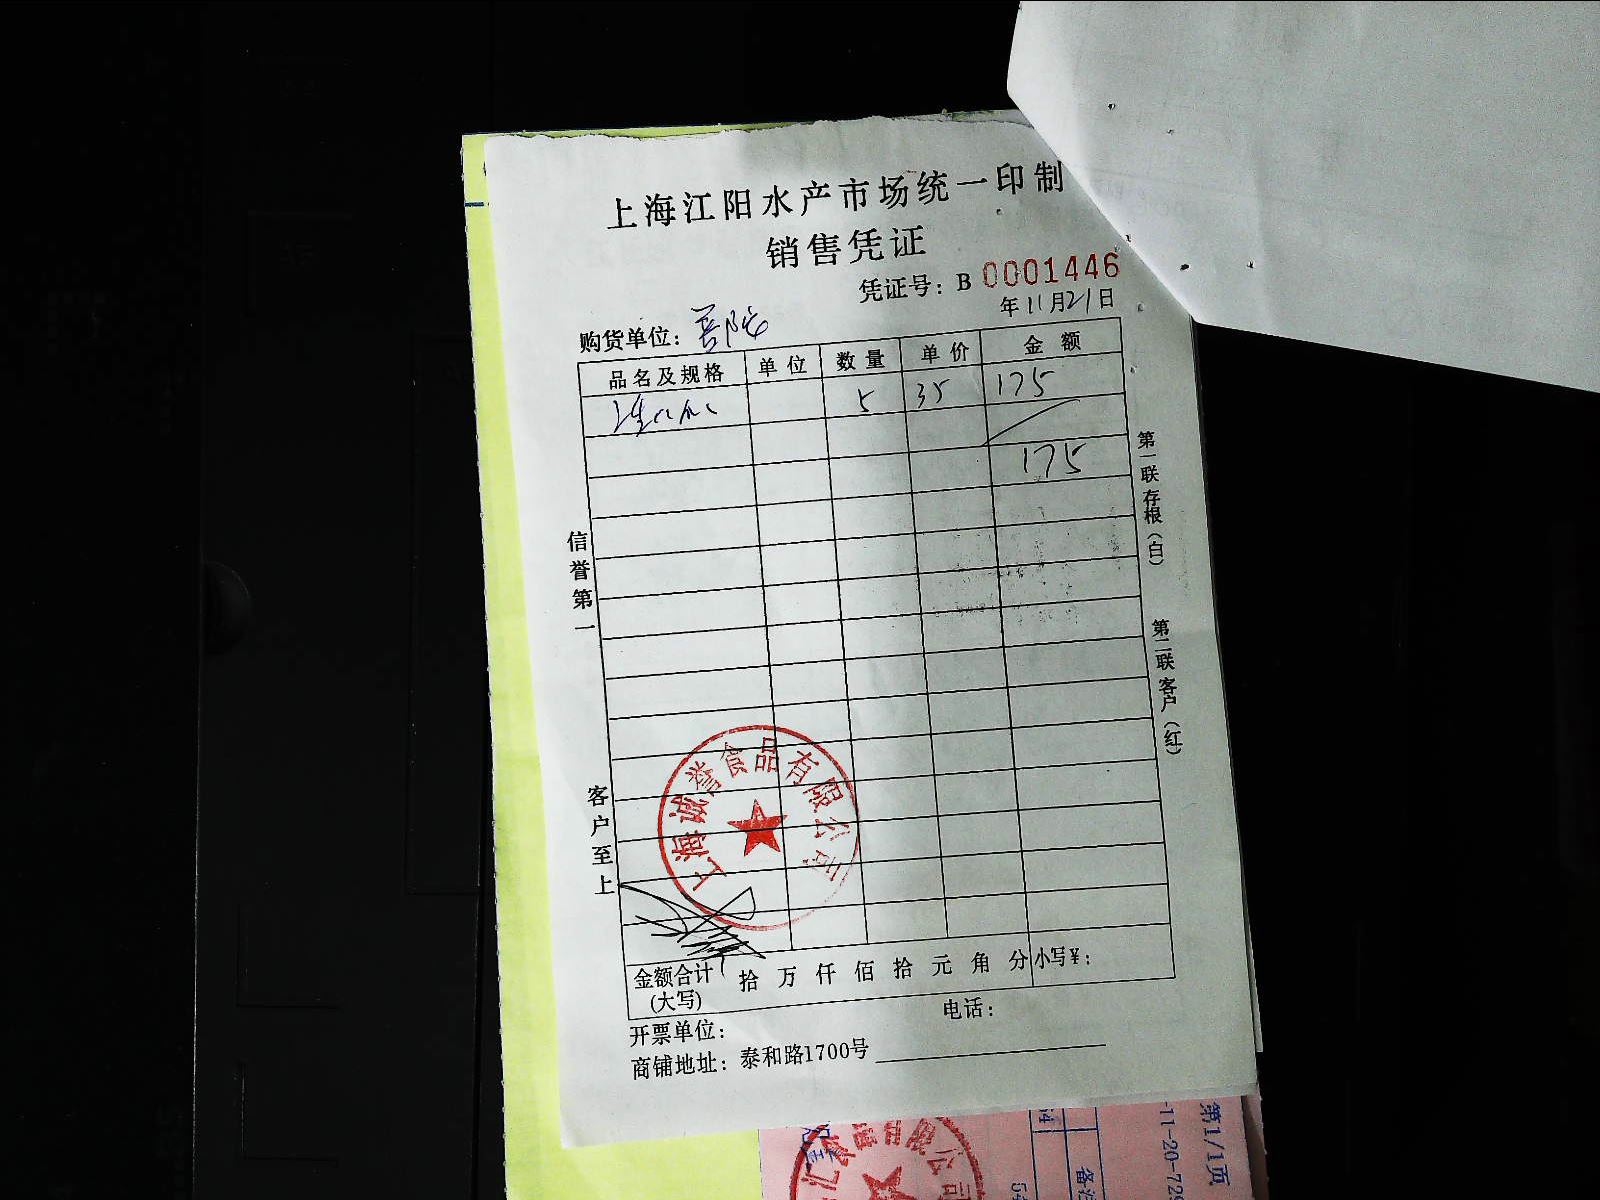 上海江阳水产市场统一印制
销售凭证
凭证号：B 0001446
年11月21日
购货单位：
品名及规格 单位 数量 单价 金额
5 35 175
175
信誉第一
客户至上
第一联存根（白）
第二联客户（红）
上海诚誉食品有限公司
金额合计（大写） 拾万仟佰拾元角分 小写¥：
开票单位： 电话：
商铺地址：泰和路1700号
汇食品有限公司
第1/1页
-11-20-729
备注
54